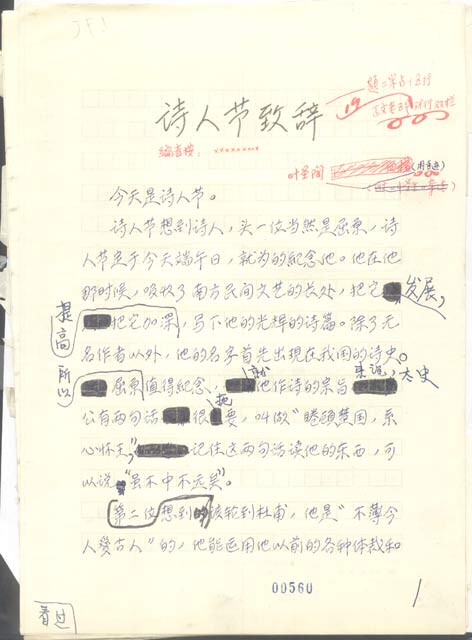 JF1
题二黑占1.5行
19
诗人节致辞
编者按：
×××××××××
叶圣陶
(用手迹)
今天是诗人节。
诗人节想到诗人，头一位当然是屈原，诗
人节定于今天端午日，就为的纪念他。他在他
那时候，吸收了南方民间文艺的长处，把它发展，
提高，把它加深，写下他的光辉的诗篇。除了无
名作者以外，他的名字首先出现在我国的诗史。
所以屈原值得纪念，就他作诗的宗旨来说，太史
公有两句话很扼要，叫做“睠顾楚国，系
心怀王”，记住这两句话读他的东西，可
以说“虽不中不远矣”。
第二位想到的该轮到杜甫，他是“不薄今
人爱古人”的，他能运用他以前的各种体裁和
00560
1
看过